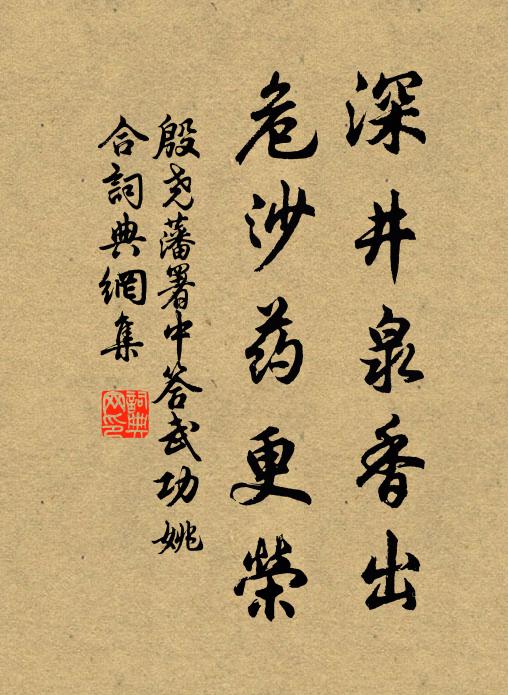 深井泉香出
危沙药更榮
殷尧藩署中答武功姚
合詞典網集
詞典
网印